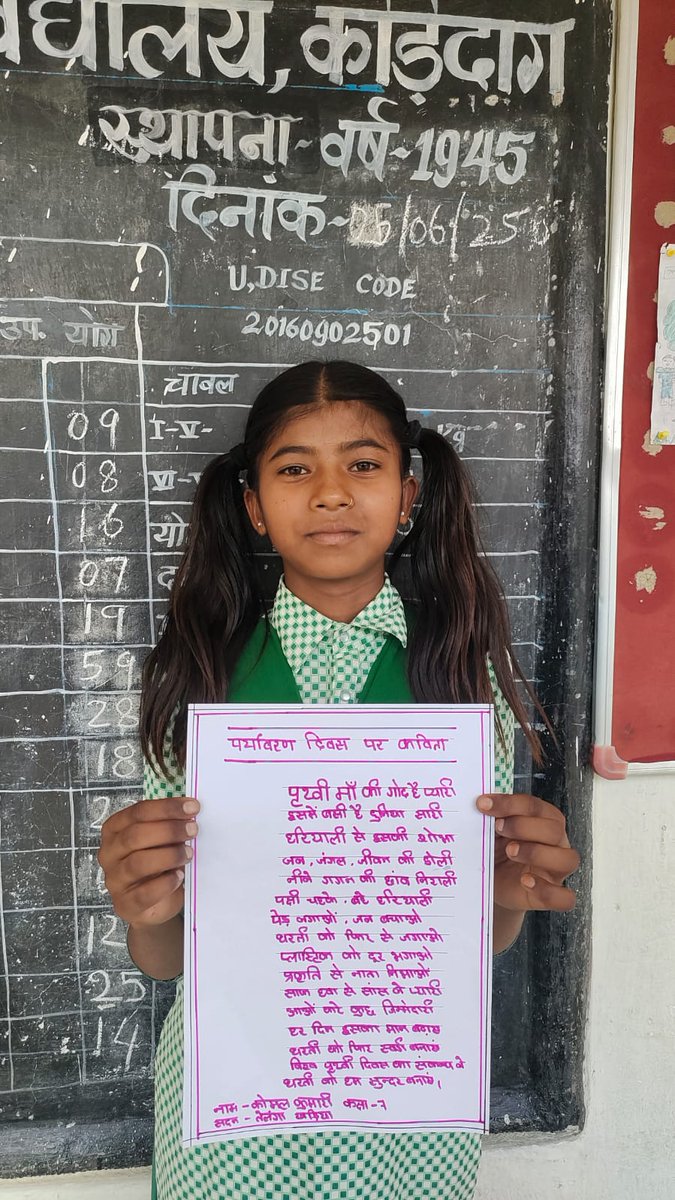 द्यालय, कोड़ेदाग
स्थापना - वर्ष - 1945
दिनांक - 05/06/25
U,DISE CODE
20160902501
उप. योग
चावल
09 I-V-
08 VI-
16 यो
07
19
59
28
18
12
25
14
पर्यावरण दिवस पर कविता
पृथ्वी माँ की गोद है प्यारी
इसमें बसी है दुनिया सारी
हरियाली से इसकी शोभा
जल, जंगल, जीवन की डोली
नीले गगन की छांव निराली
पक्षी चहके, हरियाली
पेड़ लगाओ, जल बचाओ
धरती को फिर से जगाओ
प्लास्टिक को दूर भगाओ
प्रकृति से नाता निभाओ
साफ हवा से सांस ले प्यारी
आओ करे कुछ जिम्मेदारी
हर दिन इसका मान बढ़ाए
धरती को फिर स्वर्ग बनाए
विश्व पृथ्वी दिवस का संकल्प ले
धरती को हम सुन्दर बनाए।
नाम - कोमल कुमारी कक्षा - 7
सदन - तेलंगा खड़िया